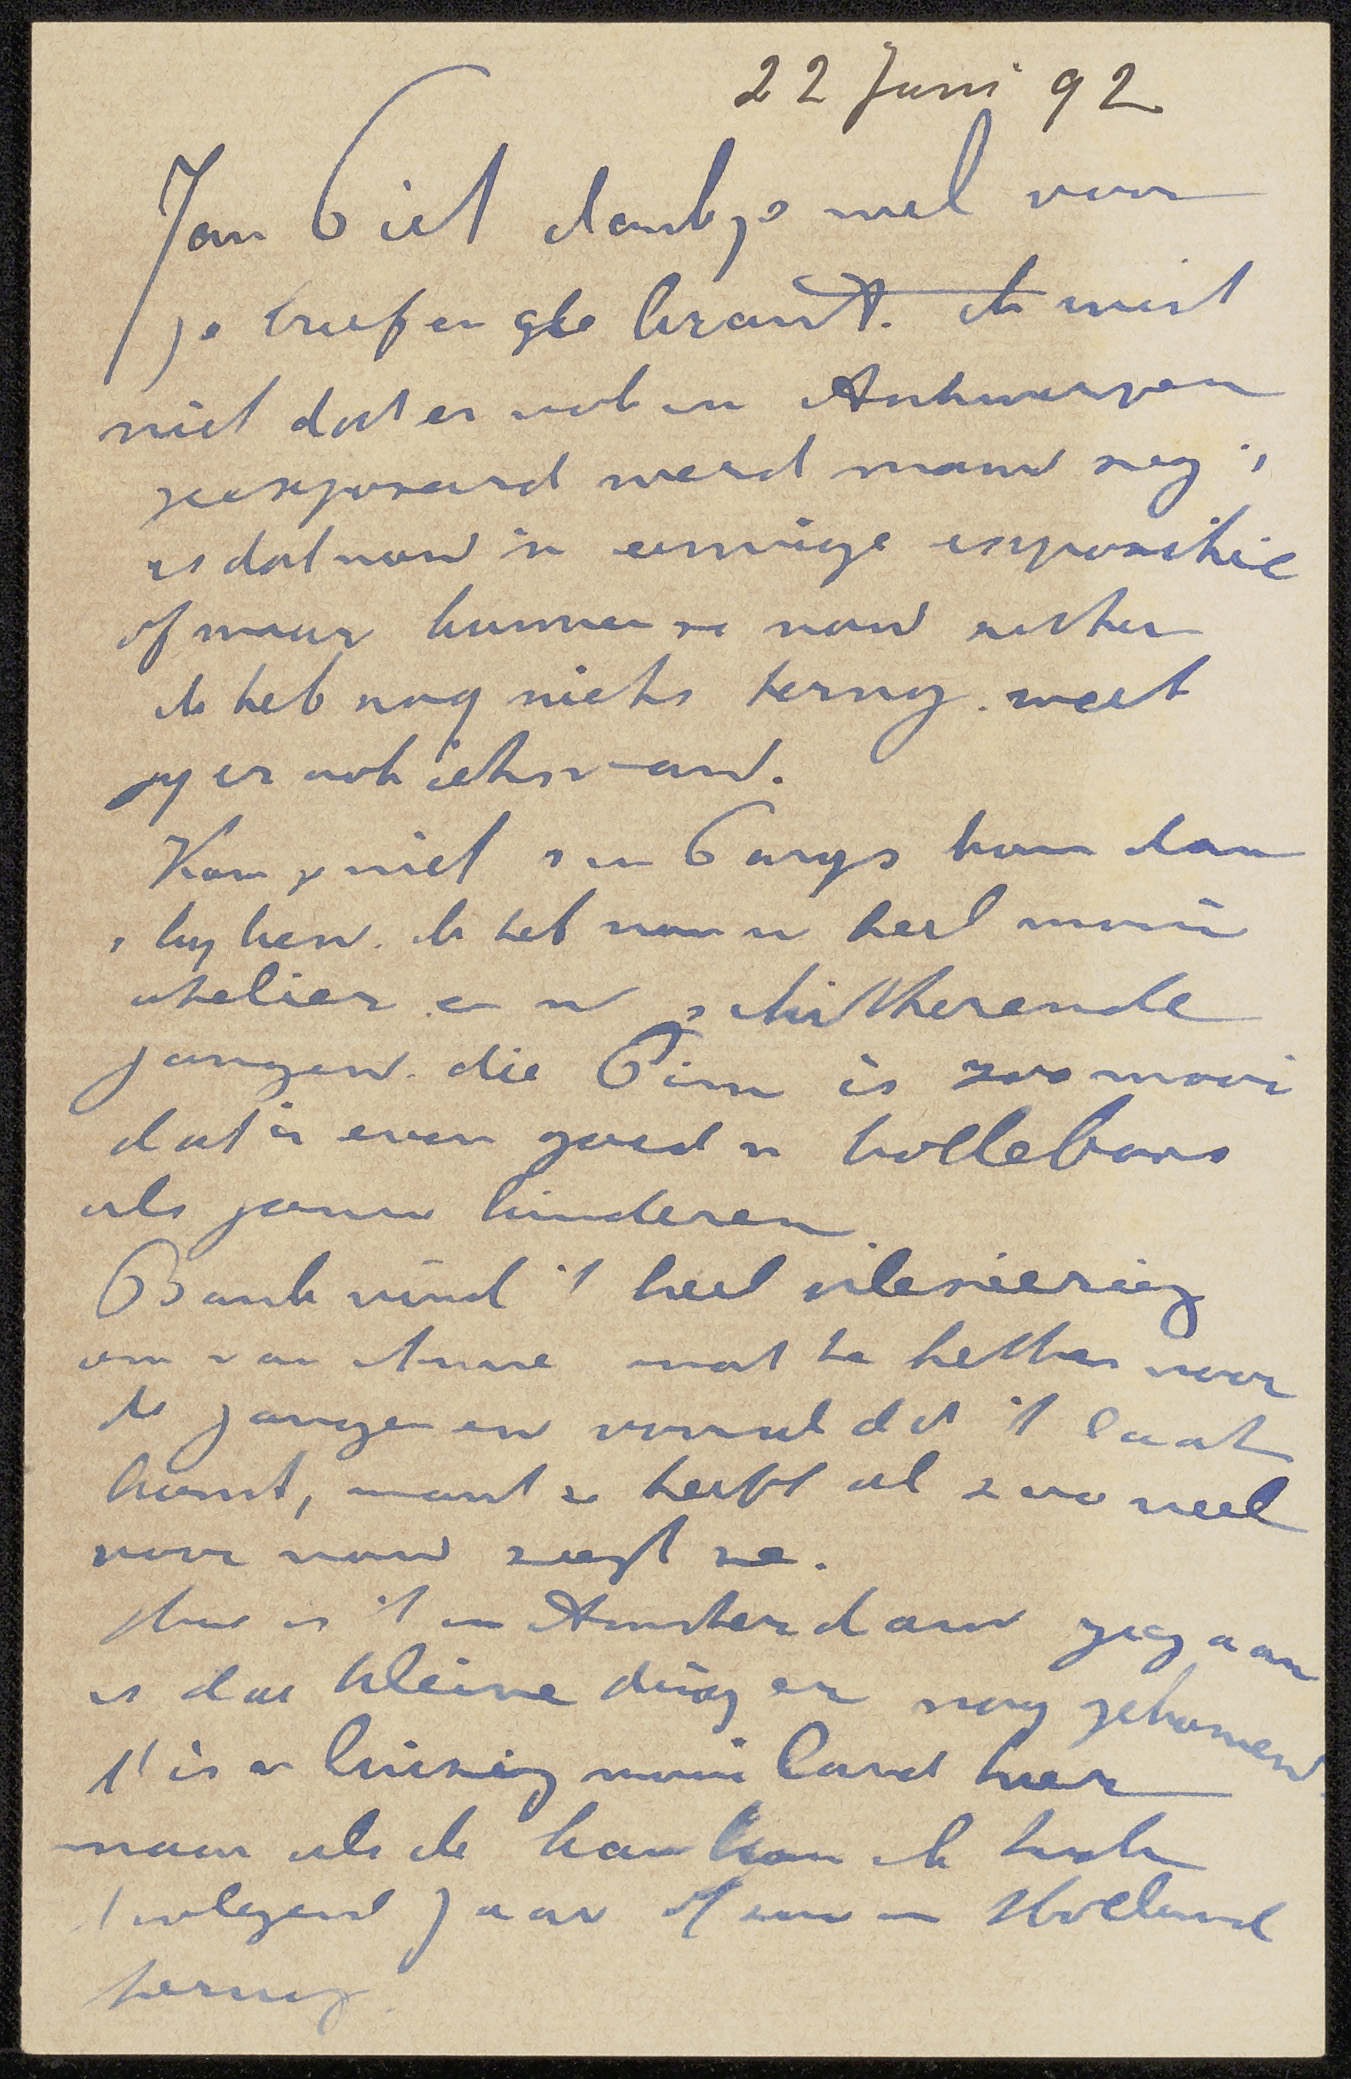 22 Juni 92
Jan Piet dank je wel voor
je brief en de krant. ik wist
niet dat er ook in Antwerpen
geexposeerd werd maar zeg 's
is dat nou 'n eenige expositie
of waar kunnen ze nou zitten
ik heb nog niets terug. weet
jij er ook iets van.
Kom je niet 's in Parys kom dan
's kyken. ik heb nou 'n heel mooi
atelier en 'n schitterende
jongen. die Pim is zoo mooi
dat is even goed 'n bollebaas
als jouw kinderen
Bank vind 't heel plesierig
om van Anne wat te hebben voor
de jongen en vooral dat 't laat
komt, want ze heeft al zoo veel
voor nou zegt ze.
Hoe is 't in Amsterdam gegaan
is dat kleine ding er nog gekomen.
't is 'n luizig mooi land hier
maar als ik kan kom ik toch
't volgend jaar of zoo in Holland
terug.